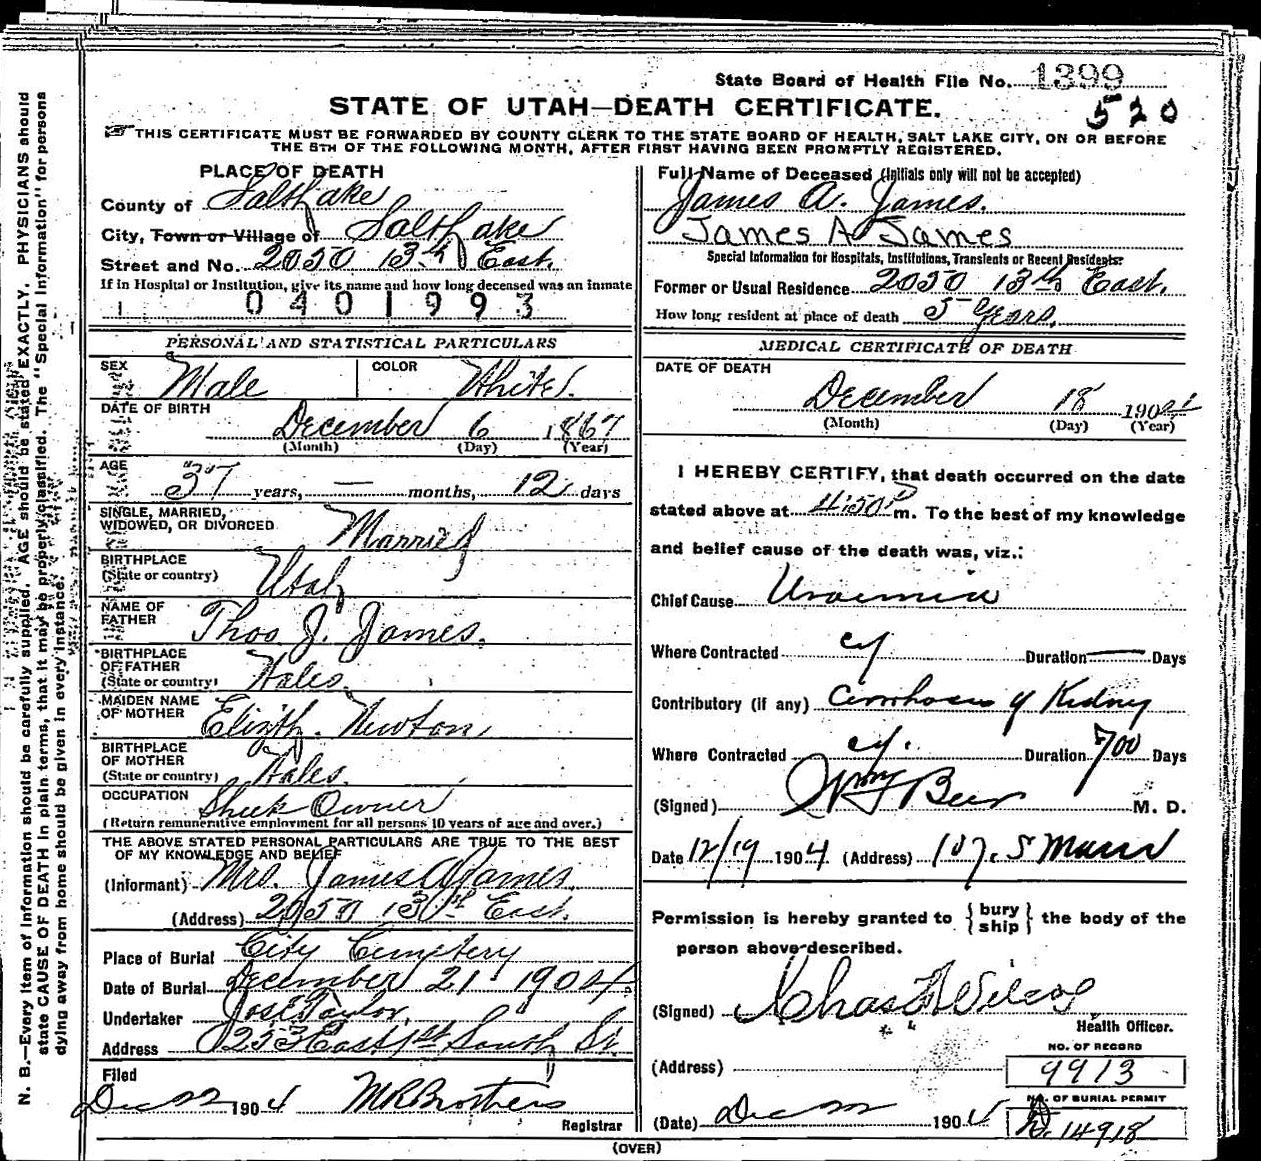 State Board of Health File No. 1399
520
STATE OF UTAH—DEATH CERTIFICATE.
THIS CERTIFICATE MUST BE FORWARDED BY COUNTY CLERK TO THE STATE BOARD OF HEALTH, SALT LAKE CITY, ON OR BEFORE
THE 5TH OF THE FOLLOWING MONTH, AFTER FIRST HAVING BEEN PROMPTLY REGISTERED.
PLACE OF DEATH
County of Salt Lake
City, Town or Village of Salt Lake
Street and No. 2050 13th East.
If in Hospital or Institution, give its name and how long deceased was an inmate
0401993
PERSONAL AND STATISTICAL PARTICULARS
SEX Male COLOR White.
DATE OF BIRTH
December 6 1867
(Month) (Day) (Year)
AGE
37 years, — months, 12 days
SINGLE, MARRIED,
WIDOWED, OR DIVORCED Married
BIRTHPLACE
(State or country) Utah
NAME OF
FATHER Thos J. James.
BIRTHPLACE
OF FATHER
(State or country) Wales.
MAIDEN NAME
OF MOTHER Elizth. Newton,
BIRTHPLACE
OF MOTHER
(State or country) Wales.
OCCUPATION Owner
(Return remunerative employment for all persons 10 years of age and over.)
THE ABOVE STATED PERSONAL PARTICULARS ARE TRUE TO THE BEST
OF MY KNOWLEDGE AND BELIEF
(Informant) Mrs. James A James,
(Address) 2050 13th East.
Place of Burial City Cemetery
Date of Burial December 21 1904.
Undertaker Jos E Taylor,
Address 253 East 1st South St.
Filed
Dec 22 1904
Registrar
Full Name of Deceased (Initials only will not be accepted)
James A. James.
James A James
Special Information for Hospitals, Institutions, Transients or Recent Residents:
Former or Usual Residence 2050 13th East.
How long resident at place of death 5 Years.
MEDICAL CERTIFICATE OF DEATH
DATE OF DEATH
December 18 1904
(Month) (Day) (Year)
I HEREBY CERTIFY, that death occurred on the date
stated above at 4:50 P m. To the best of my knowledge
and belief cause of the death was, viz.:
Chief Cause Uraemia
Where Contracted cy Duration — Days
Contributory (if any) Cirrhosis of Kidney
Where Contracted cy. Duration 700 Days
(Signed) Wm F Beer M. D.
Date 12/19 1904 (Address) 107. S Main
Permission is hereby granted to {bury
ship} the body of the
person above described.
(Signed) Chas F Wilcox
Health Officer.
NO. OF RECORD
(Address) 9913
NO. OF BURIAL PERMIT
(Date) Dec 22 1904 D. 14918
(OVER)
N. B.—Every item of information should be carefully supplied. AGE should be stated EXACTLY. PHYSICIANS should
state CAUSE OF DEATH in plain terms, that it may be properly classified. The "Special Information" for persons
dying away from home should be given in every instance.